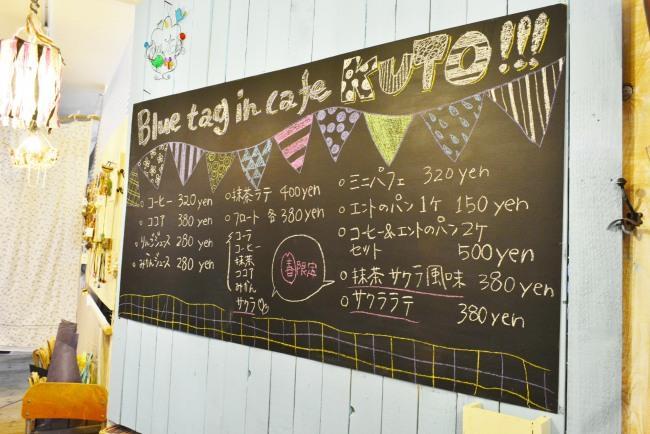 Blue tag in cafe KUTO!!!
コーヒー 320yen
ココア 380yen
りんごジュース 280yen
みかんジュース 280yen
抹茶ラテ 400yen
フロート 各380yen
コーラ
コーヒー
抹茶
ココア
みかん
サクラ
春限定
ミニパフェ 320yen
エントのパン1ケ 150yen
コーヒー&エントのパン2ケ
セット 500yen
抹茶サクラ風味 380yen
サクララテ 380yen